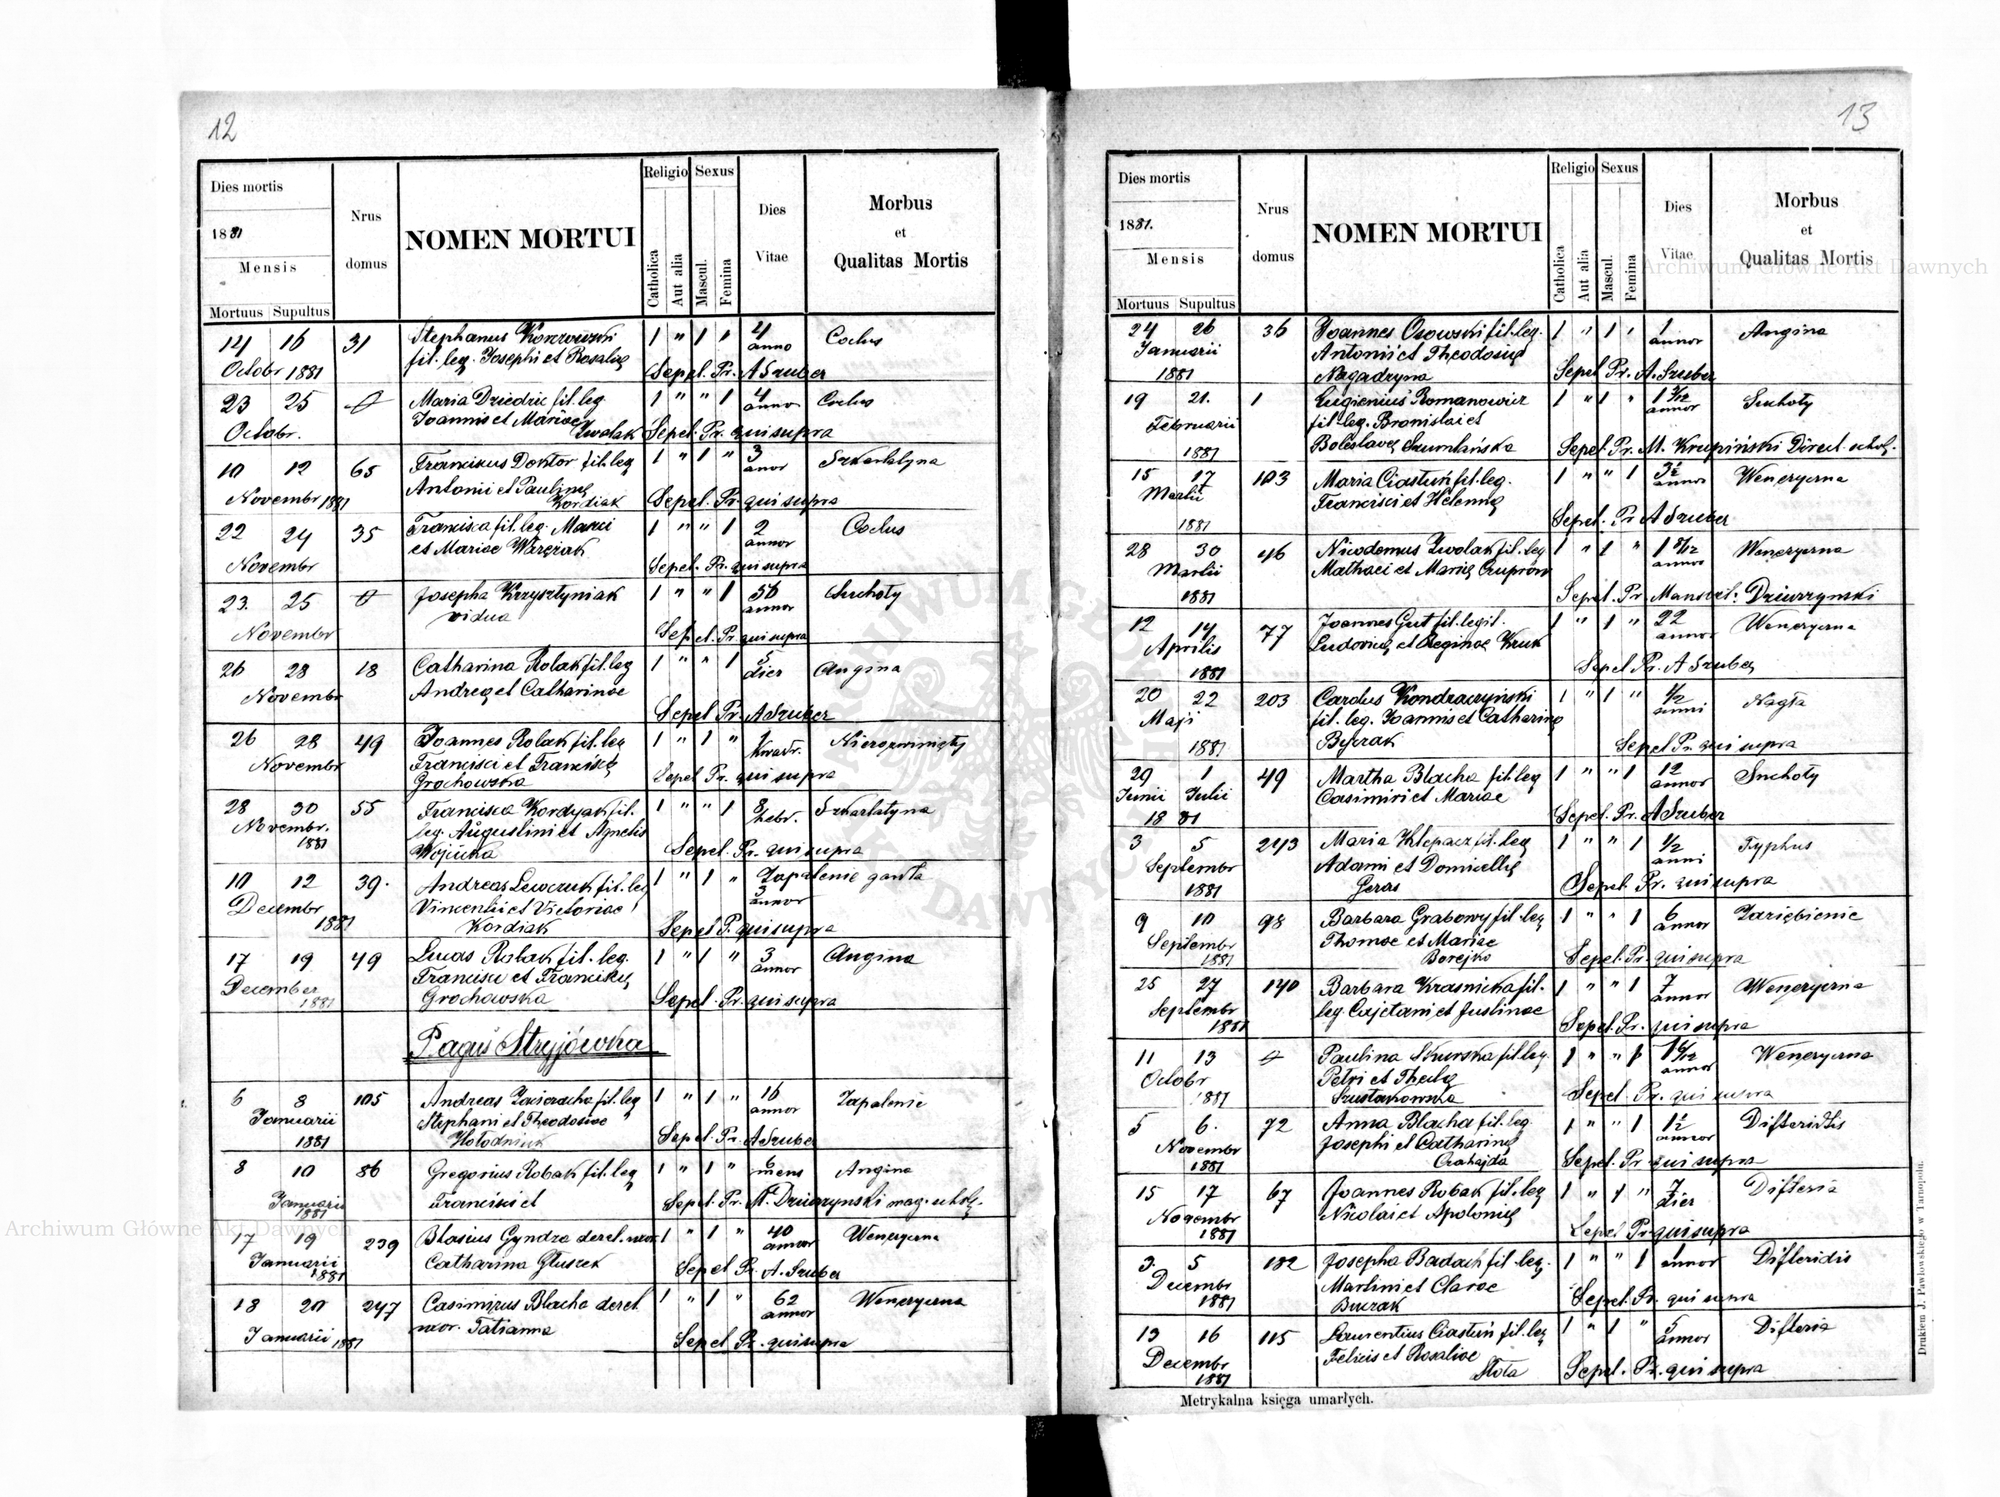 12
Dies mortis
1881
Mensis
Mortuus Supultus
Nrus
domus
NOMEN MORTUI
Religio
Catholica
Aut alia
Sexus
Mascul.
Femina
Dies
Vitae
Morbus
et
Qualitas Mortis
14 16 31 Stephanus 1 " 1 " 4 Coclus
anno
Octobr 1881 fil. leg. Josephi et Rosalię
Sepel. Pr. A Szuber
23 25 Maria Dziedzic fil. leg. 1 " " 1 4 Coclus
annor
Octobr. Joannis et Mariae
Zwolak Sepel. Pr. qui supra
10 12 65 Franciscus Doktor fil. leg 1 " 1 " 3 Szkarlatyna
anor
Antonii et Paulinę
Novembr 1881 Kordiak Sepel. Pr. qui supra
22 24 35 Francisca fil. leg. Marci 1 " " 1 2 Coclus
annor
et Mariae
Novembr Sepel. Pr. qui supra
23. 25 Josepha Krzysztyniak 1 " " 1 56 Suchoty
annor
vidua
Novembr Sepel. Pr. qui supra
26 28 18 Catharina Rolak fil. leg 1 " " 1 5 Angina
dier
Novembr Andreę et Catharinae
Sepel Pr. A Szuber
26 28 49 Joannes Rolak fil. leg 1 " 1 " 1
Kwadr.
Novembr Francisci et Franciscę
Grochowska Sepel Pr. qui supra
28 30 55 Francisca Kordyak fil. 1 " " 1 8 Szkarlatyna
hebr.
Novembr. leg. Augustini et Agnetis
1881 Wójcicka Sepel. Pr. qui supra
10 12 39. Andreas Lewczuk fil. leg 1 " 1 " Zapalenie garla
3
annor
Decembr Vincentii et Victoriae
1881 Kordiak Sepel P. qui supra
17 19 49 Lucas Rolak fil. leg. 1 " 1 " 3 Angina
annor
December Francisci et Franciscę
1881 Grochowska Sepel. Pr. qui supra
Pagus Stryjówka
6 8 105 Andreas fil. leg 1 " 1 " 16 Zapalenie
annor
Januarii Stephani et Theodosiae
1881 Hołodniuk Sepel. Pr. A Szuber
8 10 86 Gregorius Robak fil. leg 1 " 1 " 6 Angina
mens
Januarii Francisci et
1881 Sepel. Pr. M. Dzierzynski mag. schol.
17 19 239 Blasius Gyndra derel. uxor 1 " 1 " 40
annor
Januarii Catharina Głuszek
1881 Sepel Pr. A. Szuber
18 20 247 Casimirus Blacha derel. 1 " 1 " 62
annor
uxor. Tatianna
Januarii 1881 Sepel Pr. qui supra
13
Dies mortis
1881.
Mensis
Mortuus Supultus
Nrus
domus
NOMEN MORTUI
Religio
Catholica
Aut alia
Sexus
Mascul.
Femina
Dies
Vitae
Morbus
et
Qualitas Mortis
24 26 36 Joannes Osowski fil. leg. 1 " 1 " 1 Angina
annor
Januarii Antonii et Theodosię
1881 Nagadzyna Sepel Pr. A. Szuber
19 21. 1 Eugienius Romanowicz 1 " 1 " 1 9/12 Suchoty
annor
Februarii fil. leg. Bronislai et
1881 Boleslavę Szumlańska Sepel. Pr. M. Krupiński Direct. schol.
15 17 103 Maria Ciastuń fil. leg. 1 " " 1 3½
annor
Martii Francisci et Helennę
1881 Sepel. Pr. A Szuber
28 30 46 Nicodemus Zwolak fil. leg 1 " 1 " 1 8/12
annor
Martii Mathaei et Marię
1881 Sepel. Pr. Dzierzynski
12 14 77 Joannes Gut fil. legit. 1 " 1 " 22
annor
Aprilis Ludovici et Reginae Kruk
1881 Sepel Pr. A Szuber
20 22 203 Carolus Kondraczyński 1 " 1 " ½ Nagła
anni
Maji fil. leg. Joannis et Catharinę
1881 Sepel Pr. qui supra
29 1 49 Martha Blacha fil. leg 1 " " 1 12 Suchoty
annor
Junii Julii Casimiri et Mariae
1881 Sepel. Pr. A Szuber
3 5 243 Maria Khlepacz fil. leg 1 " " 1 ½ Typhus
anni
Septembr Adami et Domicellę
1881 Geras Sepel. Pr. qui supra
9 10 98 Barbara Grabowy fil. leg 1 " " 1 6 Zaziębienie
annor
Septembr Thomae et Mariae
1881 Borejko Sepel. Pr. qui supra
25 27 140 Barbara Krasnicka fil. 1 " " 1 7
annor
Septembr leg. Cajetani et Justinae
1881 Sepel. Pr. qui supra
11 13 Paulina fil. leg. 1 " " 1
annor
Octobr Petri et Theclę
1881 Szustakowska Sepel. Pr. qui supra
5 6. 72 Anna Blacha fil. leg. 1 " " 1 1½ Difteridtis
annor
Novembr Josephi et Catharinę
1881 Sepel. Pr qui supra
15 17 67 Joannes Robak fil. leg 1 " 1 " 7 Difteria
Dier
Novembr Nicolai et Apolonię
1881 Sepel Pr. qui supra
3. 5 182 Josepha Badach fil. leg. 1 " " 1 1 Difteridis
annor
Decembr Martini et Clarae
1881 Buczak Sepel. Pr. qui supra
13 16 115 Laurentius Ciastuń fil. leg 1 " 1 " 5 Difteria
annor
Decembr Felicis et Rosaliae
1881 Słota Sepel. Pr. qui supra
Metrykalna księga umarłych.
Drukiem J. Pawłowskiego w Tarnopolu.
Archiwum Główne Akt Dawnych
Archiwum Główne Akt Dawnych
ARCHIWUM GŁÓWNE AKT DAWNYCH